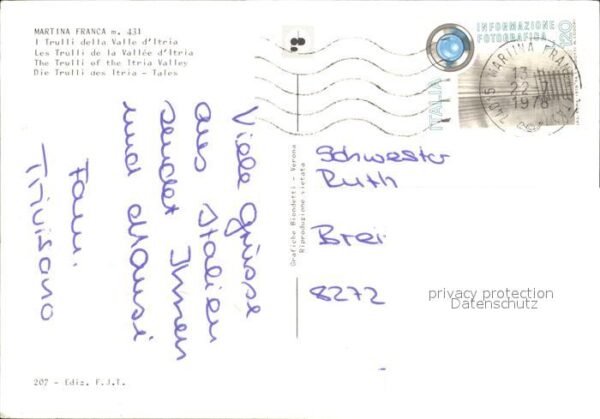 MARTINA FRANCA m. 431
I Trulli della Valle d'Itria
Les Trulli de la Vallée d'Itria
The Trulli of the Itria Valley
Die Trulli des Itria - Tales
INFORMAZIONE
FOTOGRAFICA
120
ITALIA
74015 MARTINA FRANCA
13
22.
1978
Viele Grüsse
aus Italien
sendet Ihnen
und
Fam.
Trivisano
Grafiche Biondetti - Verona
Riproduzione vietata
Schwester
Ruth
Brei
8272
privacy protection
Datenschutz
207 - Ediz. F.J.T.